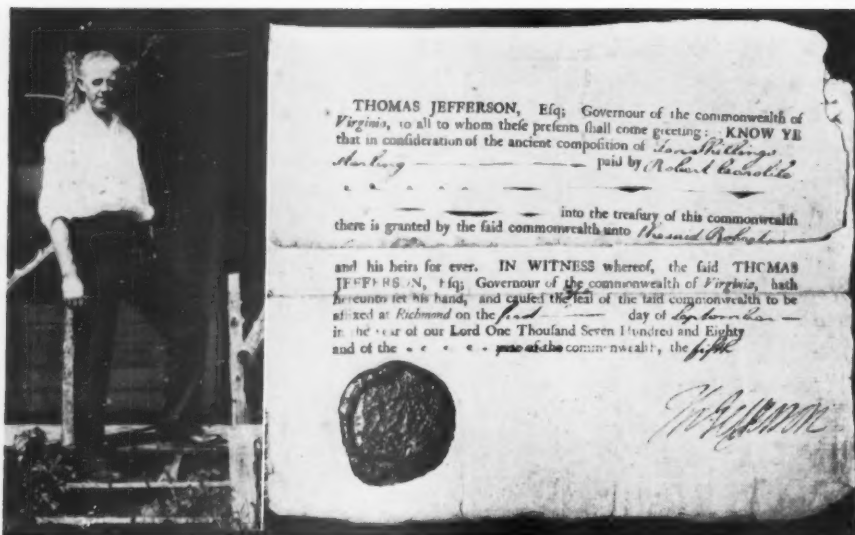 THOMAS JEFFERSON, Eſq; Governour of the commonwealth of
Virginia, to all to whom theſe preſents ſhall come greeting: KNOW YE
that in conſideration of the ancient compoſition of Ten Shillings
Sterling paid by Robert
into the treaſury of this commonwealth
there is granted by the ſaid commonwealth unto the said
and his heirs for ever. IN WITNESS whereof, the ſaid THOMAS
JEFFERSON, Eſq; Governour of the commonwealth of Virginia, hath
hereunto ſet his hand, and cauſed the ſeal of the ſaid commonwealth to be
affixed at Richmond on the first day of September
in the year of our Lord One Thouſand Seven Hundred and Eighty
and of the year of the commonwealth, the fifth
Th Jefferson